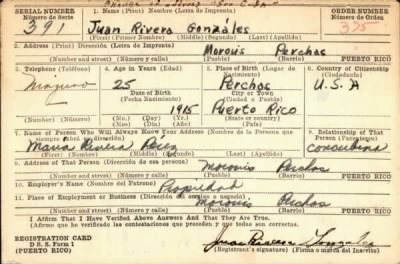 SERIAL NUMBER
Número de Serie
391
1. Name (Print) Nombre (Letra de Imprenta)
Juan Rivera Gonzáles
(First) (Primer Nombre) (Middle) (Segundo) (Last) (Apellido)
ORDER NUMBER
Número de Orden
375
2. Address (Print) Dirección (Letra de Imprenta)
Morovis Perchas
(Number and Street) (Número y Calle) (Pueblo) (Barrio) PUERTO RICO
3. Telephone (Teléfono)
4. Age in Years (Edad)
25
Date of Birth
(Fecha Nacimiento)
1915
(Mo.) (Day) (Yr.)
5. Place of Birth (Lugar de Nacimiento)
Perchas
City or Town
(Ciudad o Pueblo)
Puerto Rico
(State or country)
6. Country of Citizenship
(Ciudadanía)
U.S.A
7. Name of Person Who Will Always Know Your Address (Nombre de la Persona que siempre sabrá su dirección)
Maria Rivera
(First) (Nombre) (Middle) (Segundo) (Last) (Apellido)
8. Relationship of That Person (Parentesco)
Concubina
9. Address of That Person (Dirección de esa persona)
Morovis Perchas
(Number and Street) (Número y Calle) (Pueblo) (Barrio) PUERTO RICO
10. Employer's Name (Nombre del Patrono)
Propiedad
11. Place of Employment or Business (Dirección del empleo o negocio)
Morovis Perchas
(Number and Street) (Número y Calle) (Pueblo) (Barrio) PUERTO RICO
I Affirm That I Have Verified Above Answers And That They Are True.
(Afirmo que he verificado las contestaciones que preceden y que todas son correctas.)
REGISTRATION CARD
D. S. S. Form 1
(PUERTO RICO)
Juan Rivera Gonzales
(Registrant's signature) (Firma o marca del Inscrito)